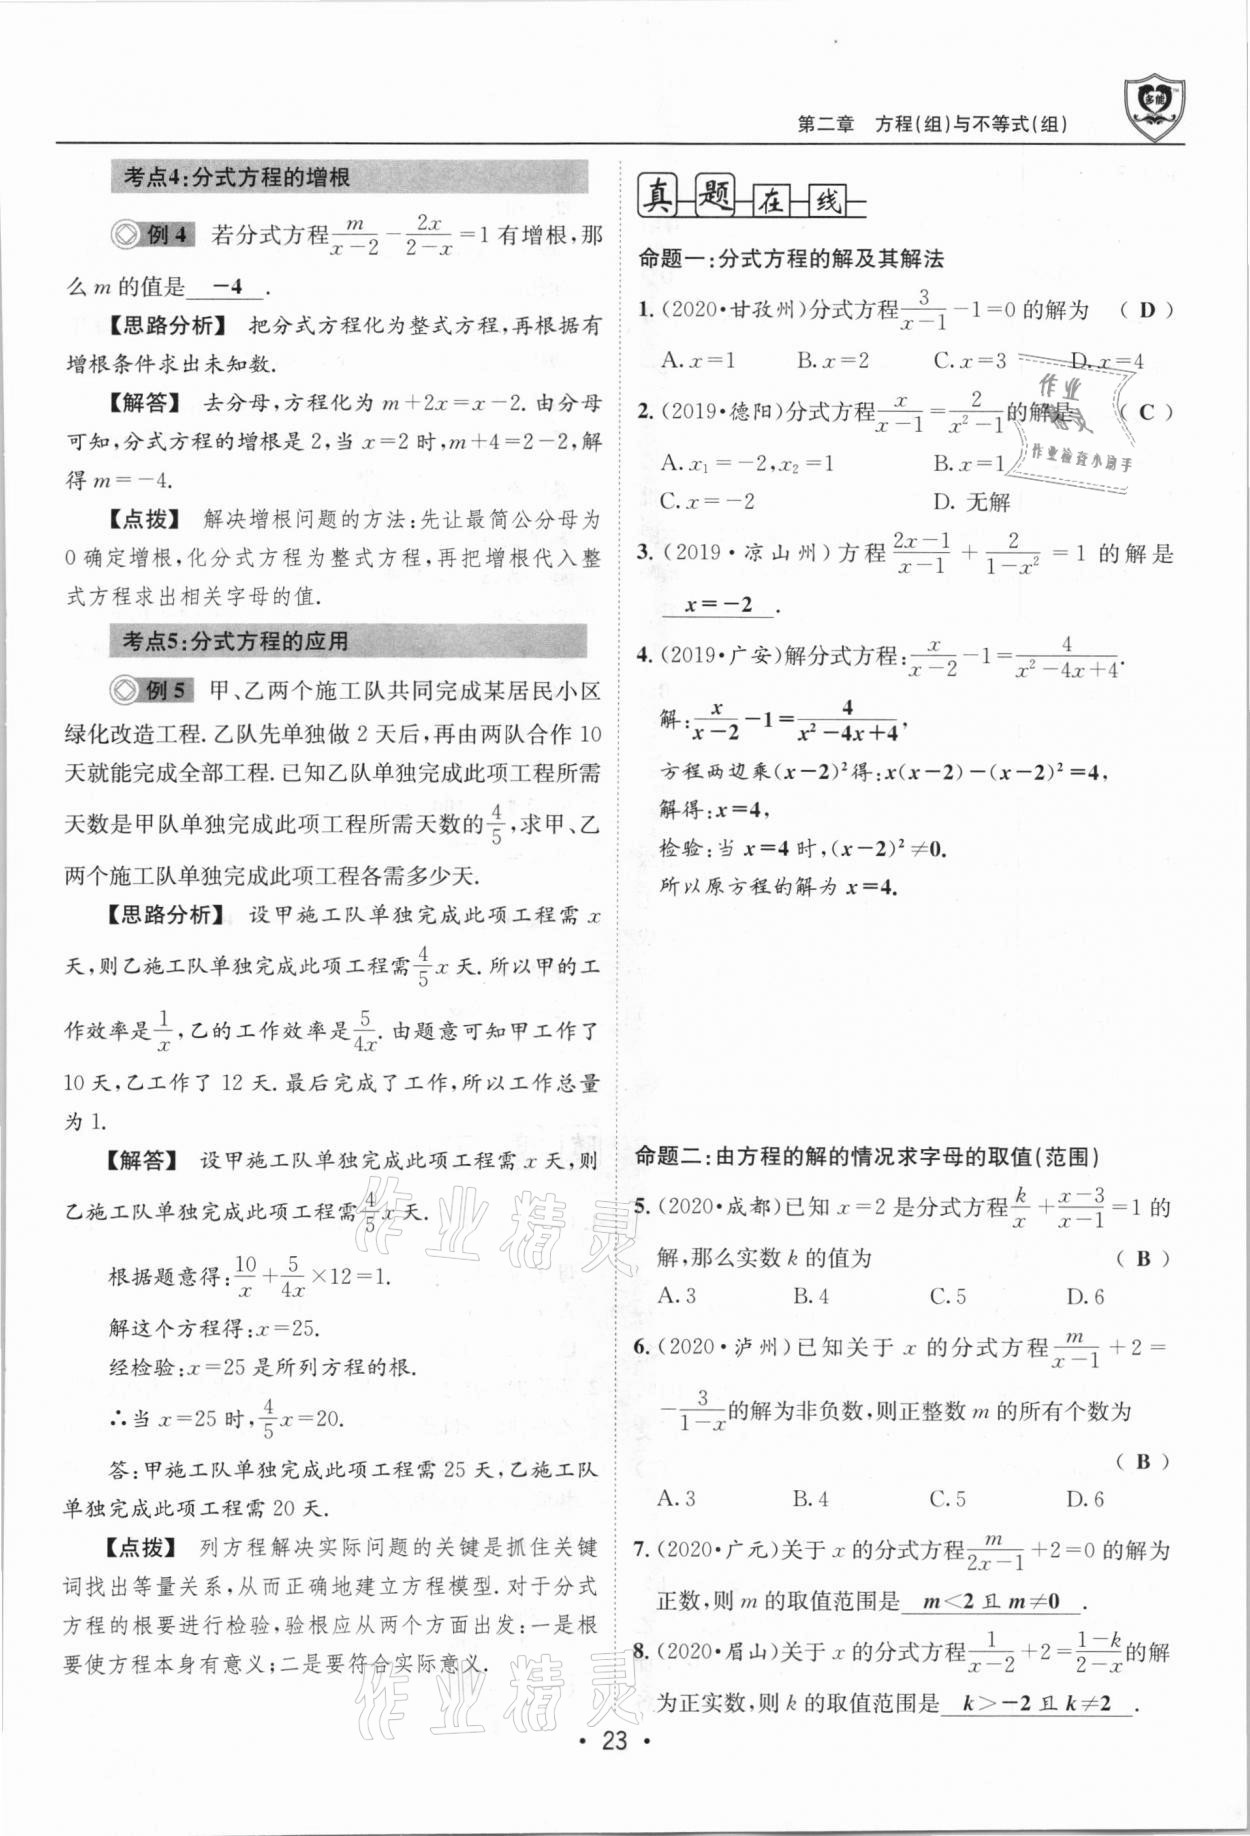 第二章 方程(组)与不等式(组)
多能
考点4:分式方程的增根
例 4 若分式方程m/(x-2)-2x/(2-x)=1有增根,那
么m的值是 -4 .
【思路分析】 把分式方程化为整式方程,再根据有
增根条件求出未知数.
【解答】 去分母,方程化为m+2x=x-2.由分母
可知,分式方程的增根是2,当x=2时,m+4=2-2,解
得m=-4.
【点拨】 解决增根问题的方法:先让最简公分母为
0确定增根,化分式方程为整式方程,再把增根代入整
式方程求出相关字母的值.
考点5:分式方程的应用
例 5 甲、乙两个施工队共同完成某居民小区
绿化改造工程.乙队先单独做2天后,再由两队合作10
天就能完成全部工程.已知乙队单独完成此项工程所需
天数是甲队单独完成此项工程所需天数的4/5,求甲、乙
两个施工队单独完成此项工程各需多少天.
【思路分析】 设甲施工队单独完成此项工程需x
天,则乙施工队单独完成此项工程需4/5x天.所以甲的工
作效率是1/x,乙的工作效率是5/4x.由题意可知甲工作了
10天,乙工作了12天.最后完成了工作,所以工作总量
为1.
【解答】 设甲施工队单独完成此项工程需x天,则
乙施工队单独完成此项工程需4/5x天.
根据题意得:10/x+5/4x×12=1.
解这个方程得:x=25.
经检验:x=25是所列方程的根.
∴当x=25时,4/5x=20.
答:甲施工队单独完成此项工程需25天,乙施工队
单独完成此项工程需20天.
【点拨】 列方程解决实际问题的关键是抓住关键
词找出等量关系,从而正确地建立方程模型.对于分式
方程的根要进行检验,验根应从两个方面出发:一是根
要使方程本身有意义;二是要符合实际意义.
真题在线
命题一:分式方程的解及其解法
1.(2020·甘孜州)分式方程3/(x-1)-1=0的解为 ( D )
A.x=1 B.x=2 C.x=3 D.x=4
2.(2019·德阳)分式方程x/(x-1)=2/(x²-1)的解是 ( C )
A.x₁=-2,x₂=1 B.x=1
C.x=-2 D.无解
3.(2019·凉山州)方程(2x-1)/(x-1)+2/(1-x²)=1的解是
x=-2 .
4.(2019·广安)解分式方程:x/(x-2)-1=4/(x²-4x+4).
解:x/(x-2)-1=4/(x²-4x+4),
方程两边乘(x-2)²得:x(x-2)-(x-2)²=4,
解得:x=4,
检验:当x=4时,(x-2)²≠0.
所以原方程的解为x=4.
命题二:由方程的解的情况求字母的取值(范围)
5.(2020·成都)已知x=2是分式方程k/x+(x-3)/(x-1)=1的
解,那么实数k的值为 ( B )
A.3 B.4 C.5 D.6
6.(2020·泸州)已知关于x的分式方程m/(x-1)+2=
-3/(1-x)的解为非负数,则正整数m的所有个数为
( B )
A.3 B.4 C.5 D.6
7.(2020·广元)关于x的分式方程m/(2x-1)+2=0的解为
正数,则m的取值范围是 m<2且m≠0 .
8.(2020·眉山)关于x的分式方程1/(x-2)+2=(1-k)/(2-x)的解
为正实数,则k的取值范围是 k>-2且k≠2 .
作业精灵
作业检查小助手
作业精灵
作业精灵
·23·